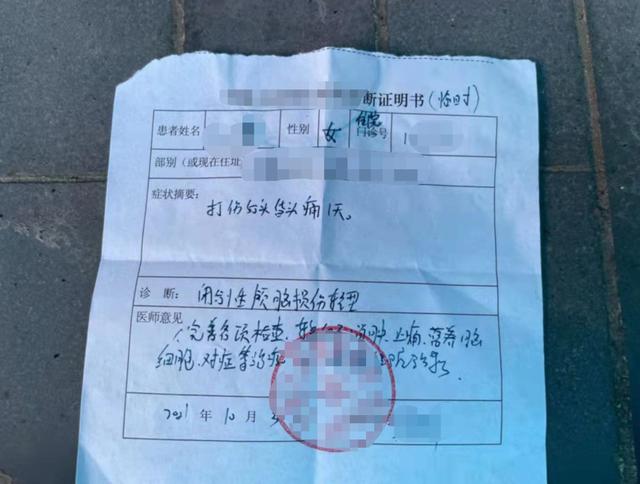 断证明书(临时)
患者姓名 性别 女 住院 门诊号
部别(或现在住址
症状摘要: 打伤致头痛1天。
诊 断: 闭合性颅脑损伤轻型
医师意见
完善各项检查、 消肿、止痛、营养脑
细胞、对症等治疗
2021 年 10 月